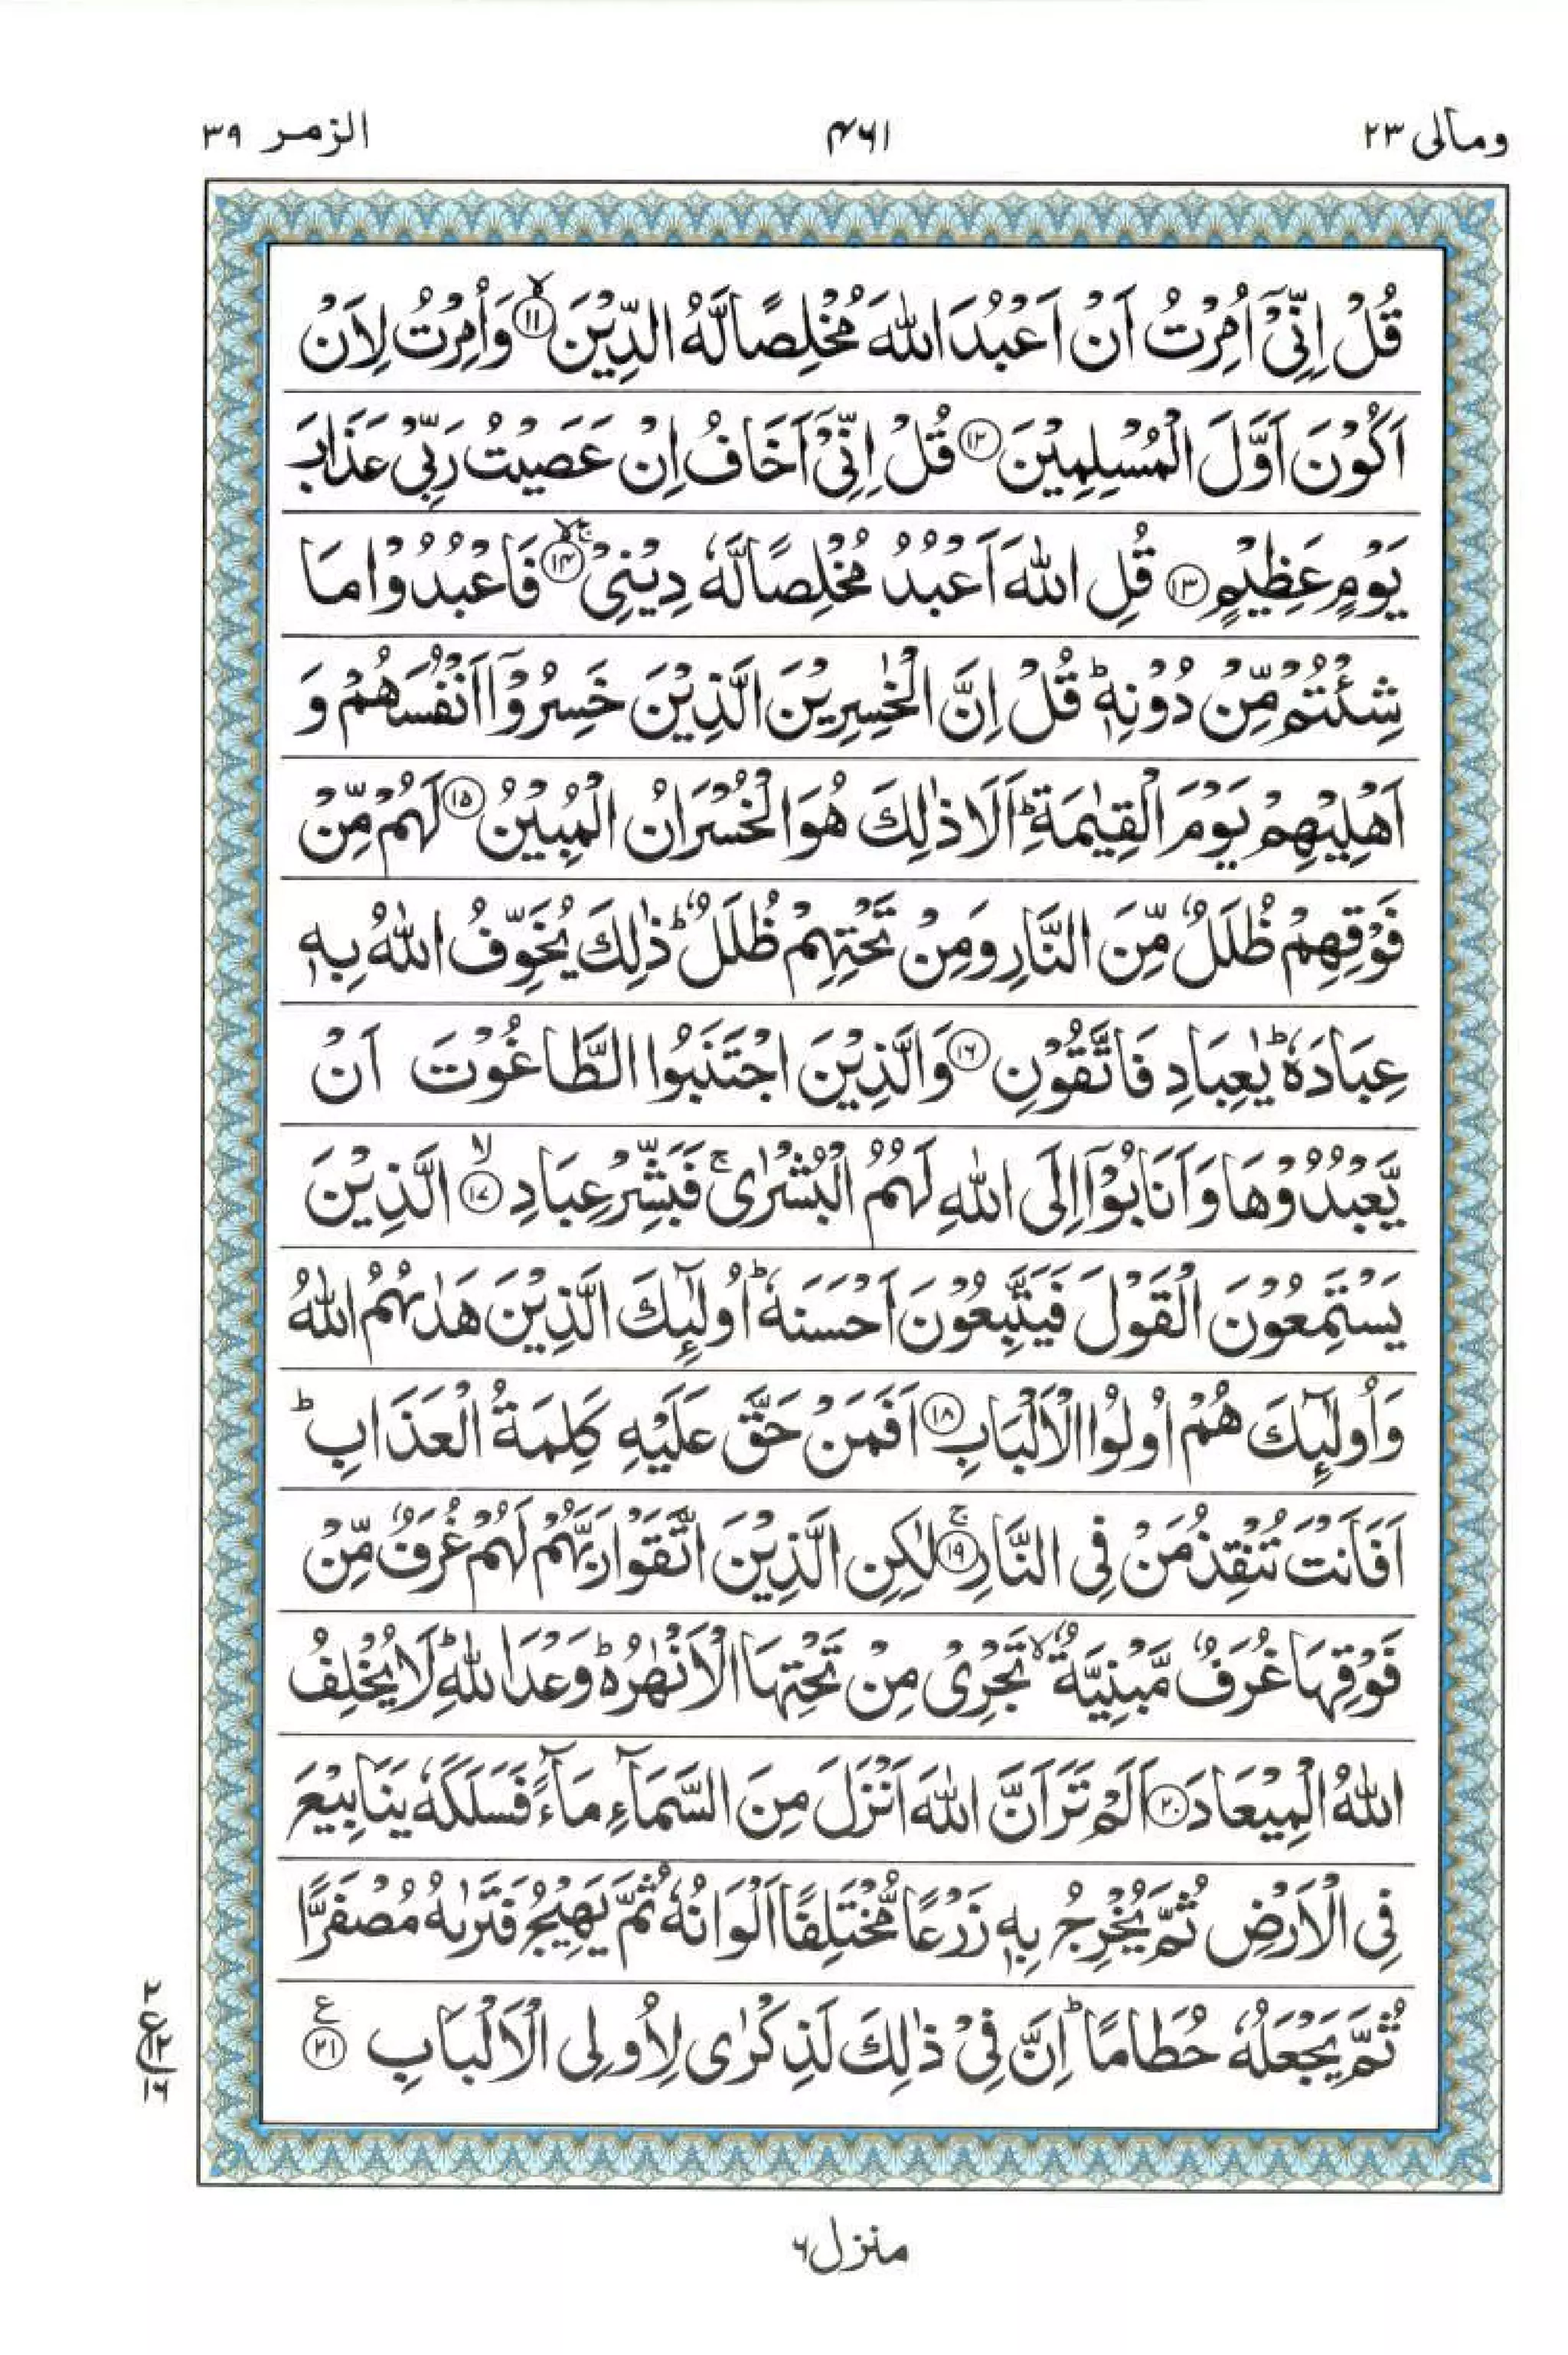 ومالی ۲۳
۴۶۱
الزمر ۳۹
قُلْ اِنِّیْۤ اُمِرْتُ اَنْ اَعْبُدَ اللّٰهَ مُخْلِصًا لَّهُ الدِّیْنَ ۙ‏﴿۱۱﴾ وَاُمِرْتُ لِاَنْ
اَكُوْنَ اَوَّلَ الْمُسْلِمِیْنَ ﴿۱۲﴾ قُلْ اِنِّیْۤ اَخَافُ اِنْ عَصَیْتُ رَبِّیْ عَذَابَ
یَوْمٍ عَظِیْمٍ ﴿۱۳﴾ قُلِ اللّٰهَ اَعْبُدُ مُخْلِصًا لَّهٗ دِیْنِیْ ۙۚ‏﴿۱۴﴾ فَاعْبُدُوْا مَا
شِئْتُمْ مِّنْ دُوْنِهٖ ؕ قُلْ اِنَّ الْخٰسِرِیْنَ الَّذِیْنَ خَسِرُوْۤا اَنْفُسَهُمْ وَ
اَهْلِیْهِمْ یَوْمَ الْقِیٰمَةِ ؕ اَلَا ذٰلِكَ هُوَ الْخُسْرَانُ الْمُبِیْنُ ﴿۱۵﴾ لَهُمْ مِّنْ
فَوْقِهِمْ ظُلَلٌ مِّنَ النَّارِ وَمِنْ تَحْتِهِمْ ظُلَلٌ ؕ ذٰلِكَ یُخَوِّفُ اللّٰهُ بِهٖ
عِبَادَهٗ ؕ یٰعِبَادِ فَاتَّقُوْنِ ﴿۱۶﴾ وَالَّذِیْنَ اجْتَنَبُوا الطَّاغُوْتَ اَنْ
یَّعْبُدُوْهَا وَاَنَابُوْۤا اِلَی اللّٰهِ لَهُمُ الْبُشْرٰی ۚ فَبَشِّرْ عِبَادِ ۙ‏﴿۱۷﴾ الَّذِیْنَ
یَسْتَمِعُوْنَ الْقَوْلَ فَیَتَّبِعُوْنَ اَحْسَنَهٗ ؕ اُولٰٓئِكَ الَّذِیْنَ هَدٰىهُمُ اللّٰهُ
وَاُولٰٓئِكَ هُمْ اُولُوا الْاَلْبَابِ ﴿۱۸﴾ اَفَمَنْ حَقَّ عَلَیْهِ كَلِمَةُ الْعَذَابِ ؕ
اَفَاَنْتَ تُنْقِذُ مَنْ فِی النَّارِ ۚ‏﴿۱۹﴾ لٰكِنِ الَّذِیْنَ اتَّقَوْا رَبَّهُمْ لَهُمْ غُرَفٌ مِّنْ
فَوْقِهَا غُرَفٌ مَّبْنِیَّةٌ ۙ تَجْرِیْ مِنْ تَحْتِهَا الْاَنْهٰرُ ؕ۬ وَعْدَ اللّٰهِ ؕ لَا یُخْلِفُ
اللّٰهُ الْمِیْعَادَ ﴿۲۰﴾ اَلَمْ تَرَ اَنَّ اللّٰهَ اَنْزَلَ مِنَ السَّمَآءِ مَآءً فَسَلَكَهٗ یَنَابِیْعَ
فِی الْاَرْضِ ثُمَّ یُخْرِجُ بِهٖ زَرْعًا مُّخْتَلِفًا اَلْوَانُهٗ ثُمَّ یَهِیْجُ فَتَرٰىهُ مُصْفَرًّا
ثُمَّ یَجْعَلُهٗ حُطَامًا ؕ اِنَّ فِیْ ذٰلِكَ لَذِكْرٰی لِاُولِی الْاَلْبَابِ ﴿۲۱﴾ ع
۲
ع ۱۲
۱۶
منزل ۶